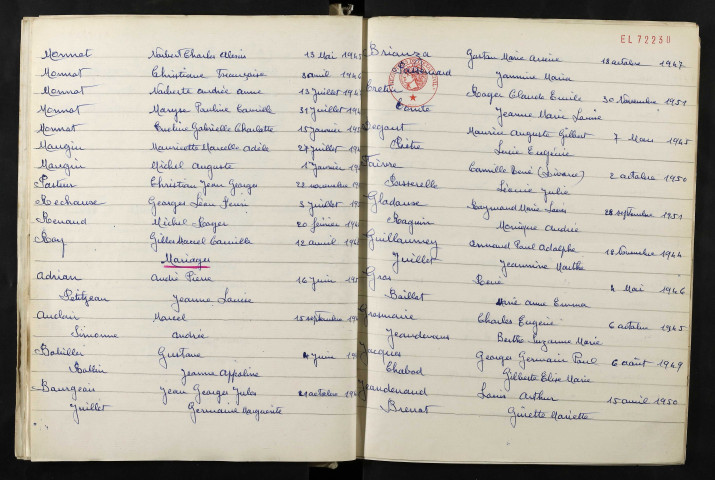 Monnot Norbert Charles Alexis 13 Mai 194
Monnot Christiane Françoise 3 avril 1946
Monnot Norberte Andrée Anne 13 Juillet 194
Monnot Maryse Pauline Camille 31 Juillet 194
Monnot Eveline Gabrielle Charlotte 15 Janvier 19
Maugin Mauricette Marcelle Adèle 27 Juillet 19
Maugin Michel Auguste 1 Janvier 19
Pasteur Christian Jean Georges 22 novembre 19
Rechausse Georges Léon Henri 3 Juillet 19
Renaud Michel Roger 20 février 194
Roy Gilles Marcel Camille 12 avril 194
Mariages
Adrian André Pierre 16 Juin 19
Petitjean Jeanne Louise
Auclair Marcel 15 septembre 19
Simonne Andrée
Gustave 4 Juin 19
Jeanne Appoline
Bourgeois Jean Georges Jules 21 octobre 19
Juillet Germaine Marguerite
EL 7223
Brianza Gaston Marie Arsène 18 octobre 1947
Jeannine Maria
Roger Claude Emile 30 Novembre 1951
Comte Jeanne Marie Louise
Maurice Auguste Gilbert 7 Mars 1945
Lucie Eugénie
Faivre Camille René 2 octobre 1950
Passerelle Léonie Julie
Gladousse Raymond Marie Louis 28 septembre 1951
Raguin Monique Andrée
Guillaumey Armand Paul Adolphe 18 Novembre 1944
Juillet Jeannine Marthe
Gros René 4 Mai 1946
Baillet Marie Anne Emma
Gromaire Charles Eugène 6 octobre 1945
Jeandenans Berthe Suzanne Marie
Jacques Georges Germain Paul 6 août 1949
Chabod Gilberte Elise Marie
Jeandenand Louis Arthur 15 avril 1950
Brenot Ginette Mariette